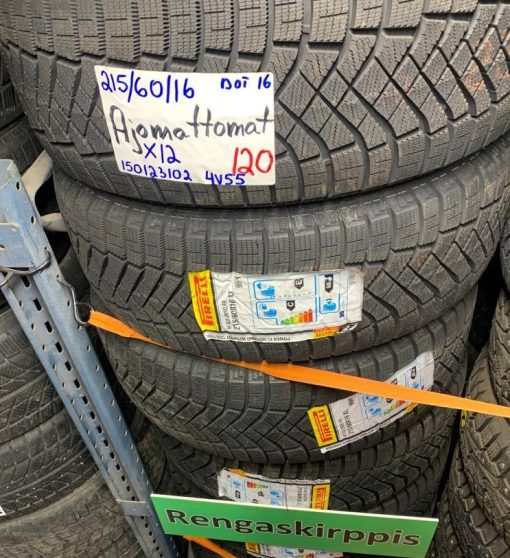 215/60/16 DOT 16
Ajomattomat
X12 120
150123102 4V55
PIRELLI
G E
PIRELLI
PIRELLI
Rengaskirppis